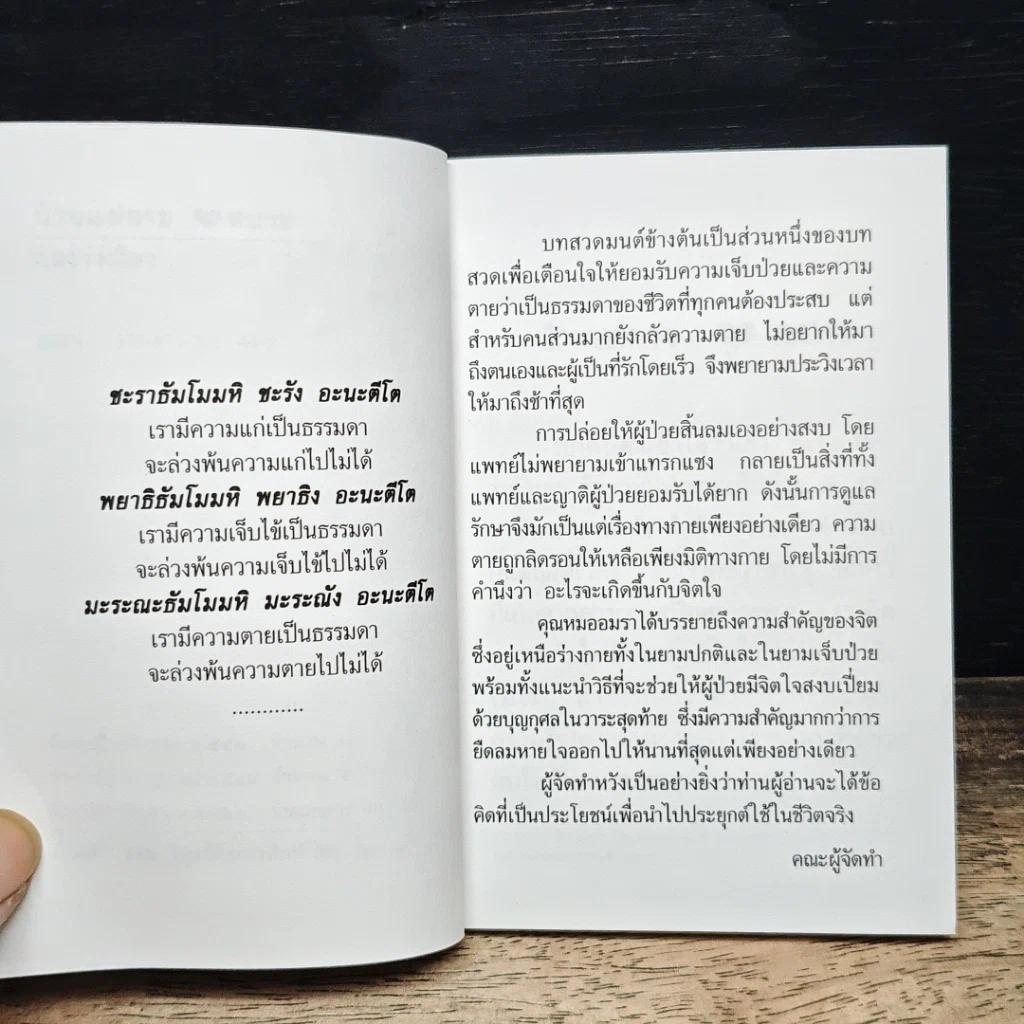 ชะราธัมโมมหิ ชะรัง อะนะตีโต
เรามีความแก่เป็นธรรมดา
จะล่วงพ้นความแก่ไปไม่ได้
พยาธิธัมโมมหิ พยาธิง อะนะตีโต
เรามีความเจ็บไข้เป็นธรรมดา
จะล่วงพ้นความเจ็บไข้ไปไม่ได้
มะระณะธัมโมมหิ มะระณัง อะนะตีโต
เรามีความตายเป็นธรรมดา
จะล่วงพ้นความตายไปไม่ได้
............
บทสวดมนต์ข้างต้นเป็นส่วนหนึ่งของบท
สวดเพื่อเตือนใจให้ยอมรับความเจ็บป่วยและความ
ตายว่าเป็นธรรมดาของชีวิตที่ทุกคนต้องประสบ แต่
สำหรับคนส่วนมากยังกลัวความตาย ไม่อยากให้มา
ถึงตนเองและผู้เป็นที่รักโดยเร็ว จึงพยายามประวิงเวลา
ให้มาถึงช้าที่สุด
การปล่อยให้ผู้ป่วยสิ้นลมเองอย่างสงบ โดย
แพทย์ไม่พยายามเข้าแทรกแซง กลายเป็นสิ่งที่ทั้ง
แพทย์และญาติผู้ป่วยยอมรับได้ยาก ดังนั้นการดูแล
รักษาจึงมักเป็นแต่เรื่องทางกายเพียงอย่างเดียว ความ
ตายถูกลิดรอนให้เหลือเพียงมิติทางกาย โดยไม่มีการ
คำนึงว่า อะไรจะเกิดขึ้นกับจิตใจ
คุณหมออมราได้บรรยายถึงความสำคัญของจิต
ซึ่งอยู่เหนือร่างกายทั้งในยามปกติและในยามเจ็บป่วย
พร้อมทั้งแนะนำวิธีที่จะช่วยให้ผู้ป่วยมีจิตใจสงบเปี่ยม
ด้วยบุญกุศลในวาระสุดท้าย ซึ่งมีความสำคัญมากกว่าการ
ยืดลมหายใจออกไปให้นานที่สุดแต่เพียงอย่างเดียว
ผู้จัดทำหวังเป็นอย่างยิ่งว่าท่านผู้อ่านจะได้ข้อ
คิดที่เป็นประโยชน์เพื่อนำไปประยุกต์ใช้ในชีวิตจริง
คณะผู้จัดทำ